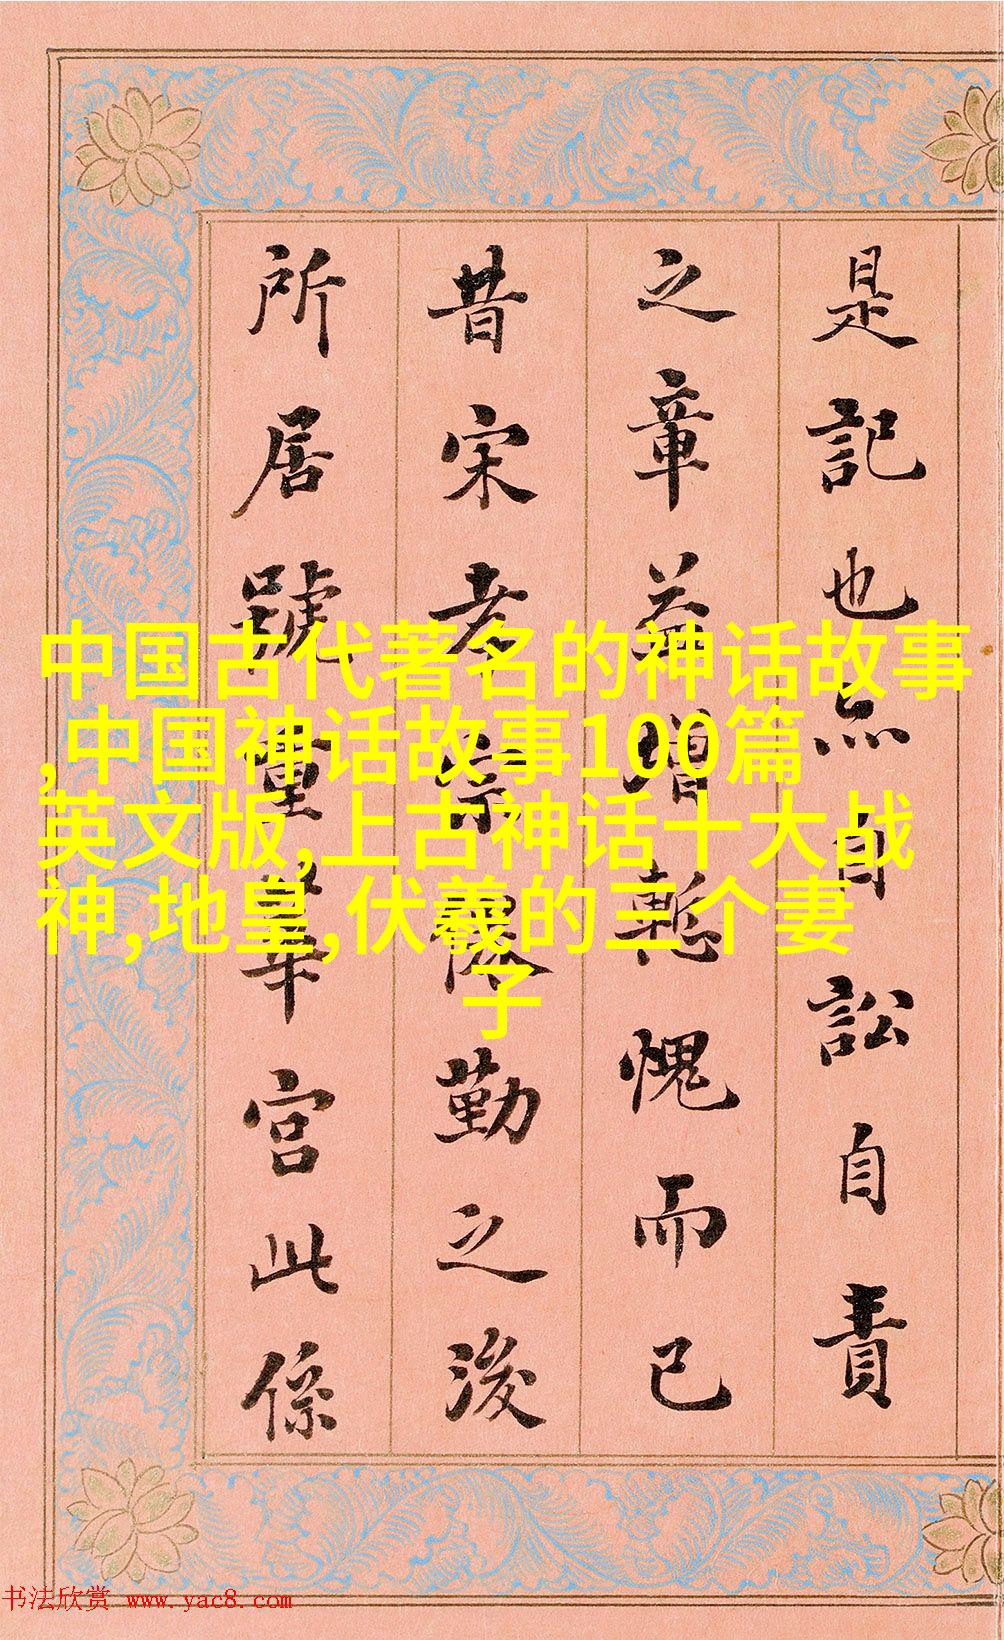 是記也亦自訟自責
之章益增慙愧而已
昔宋孝宗倦勤之後
所居號重華宮此係
中国古代著名的神话故事
,中国神话故事100篇
英文版,上古神话十大战
神,地皇,伏羲的三个妻
子
书法欣赏 www.yac8.com